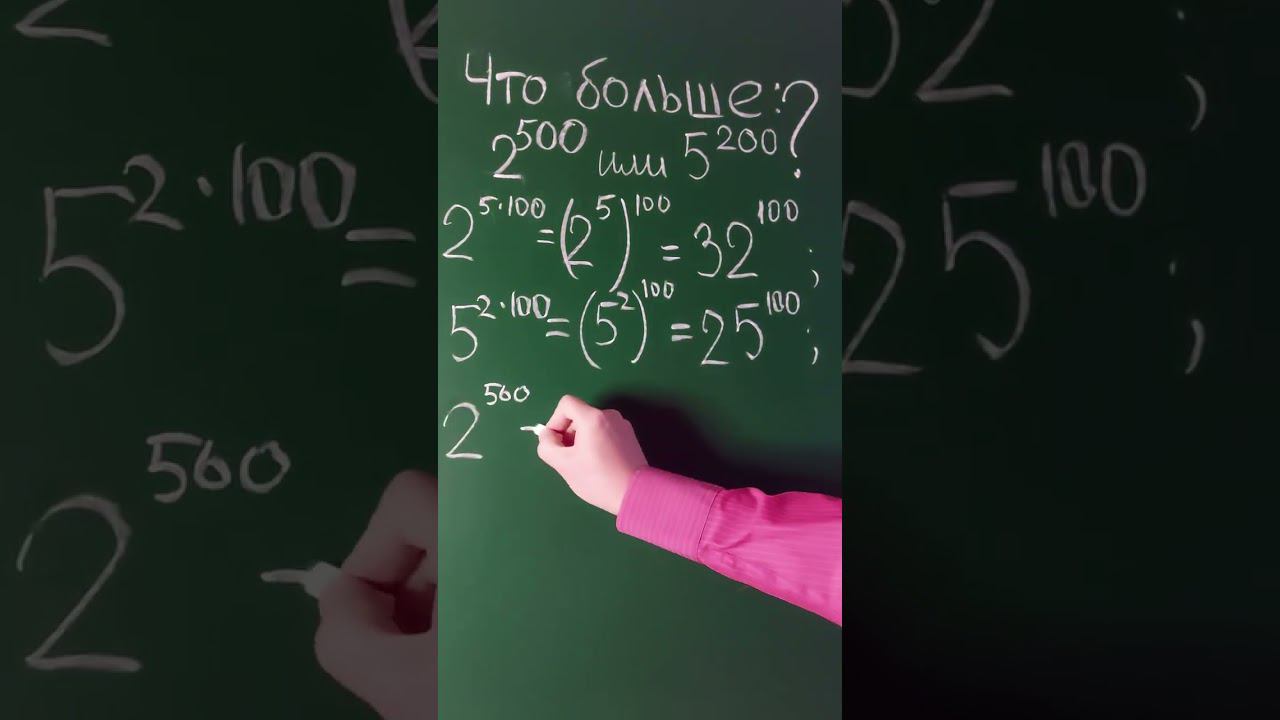 Что больше:?
2^500 или 5^200
2^5·100 = (2^5)^100 = 32^100 ;
5^2·100 = (5^2)^100 = 25^100 ;
2^500